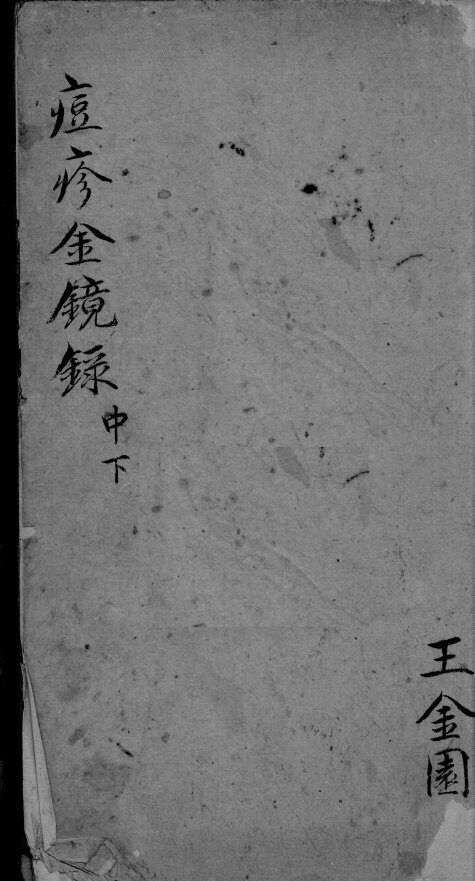 痘疹金鏡録
中下
王金園